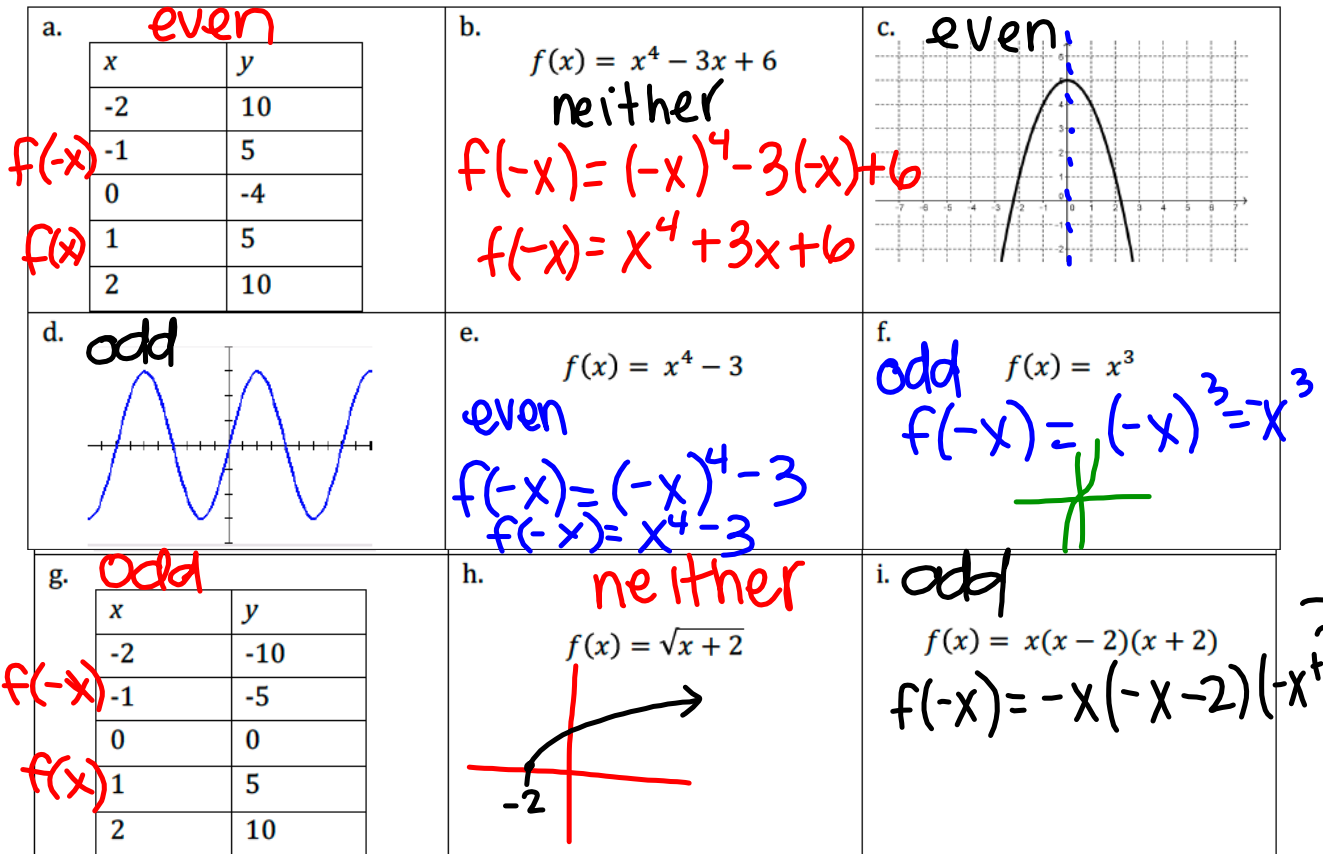 a. even
x y
-2 10
f(-x) -1 5
0 -4
f(x) 1 5
2 10
b.
f(x) = x⁴ − 3x + 6
neither
f(-x) = (-x)⁴ - 3(-x) + 6
f(-x) = x⁴ + 3x + 6
c. even
6
5
4
3
2
1
0
-7 -6 -5 -4 -3 -2 -1 0 1 2 3 4 5 6 7
-1
-2
d. odd
e.
f(x) = x⁴ − 3
even
f(-x) = (-x)⁴ - 3
f(-x) = x⁴ - 3
f.
odd f(x) = x³
f(-x) = (-x)³ = -x³
g. odd
x y
-2 -10
f(-x) -1 -5
0 0
f(x) 1 5
2 10
h. neither
f(x) = √x + 2
-2
i. odd
f(x) = x(x − 2)(x + 2)
f(-x) = -x(-x-2)(-x+